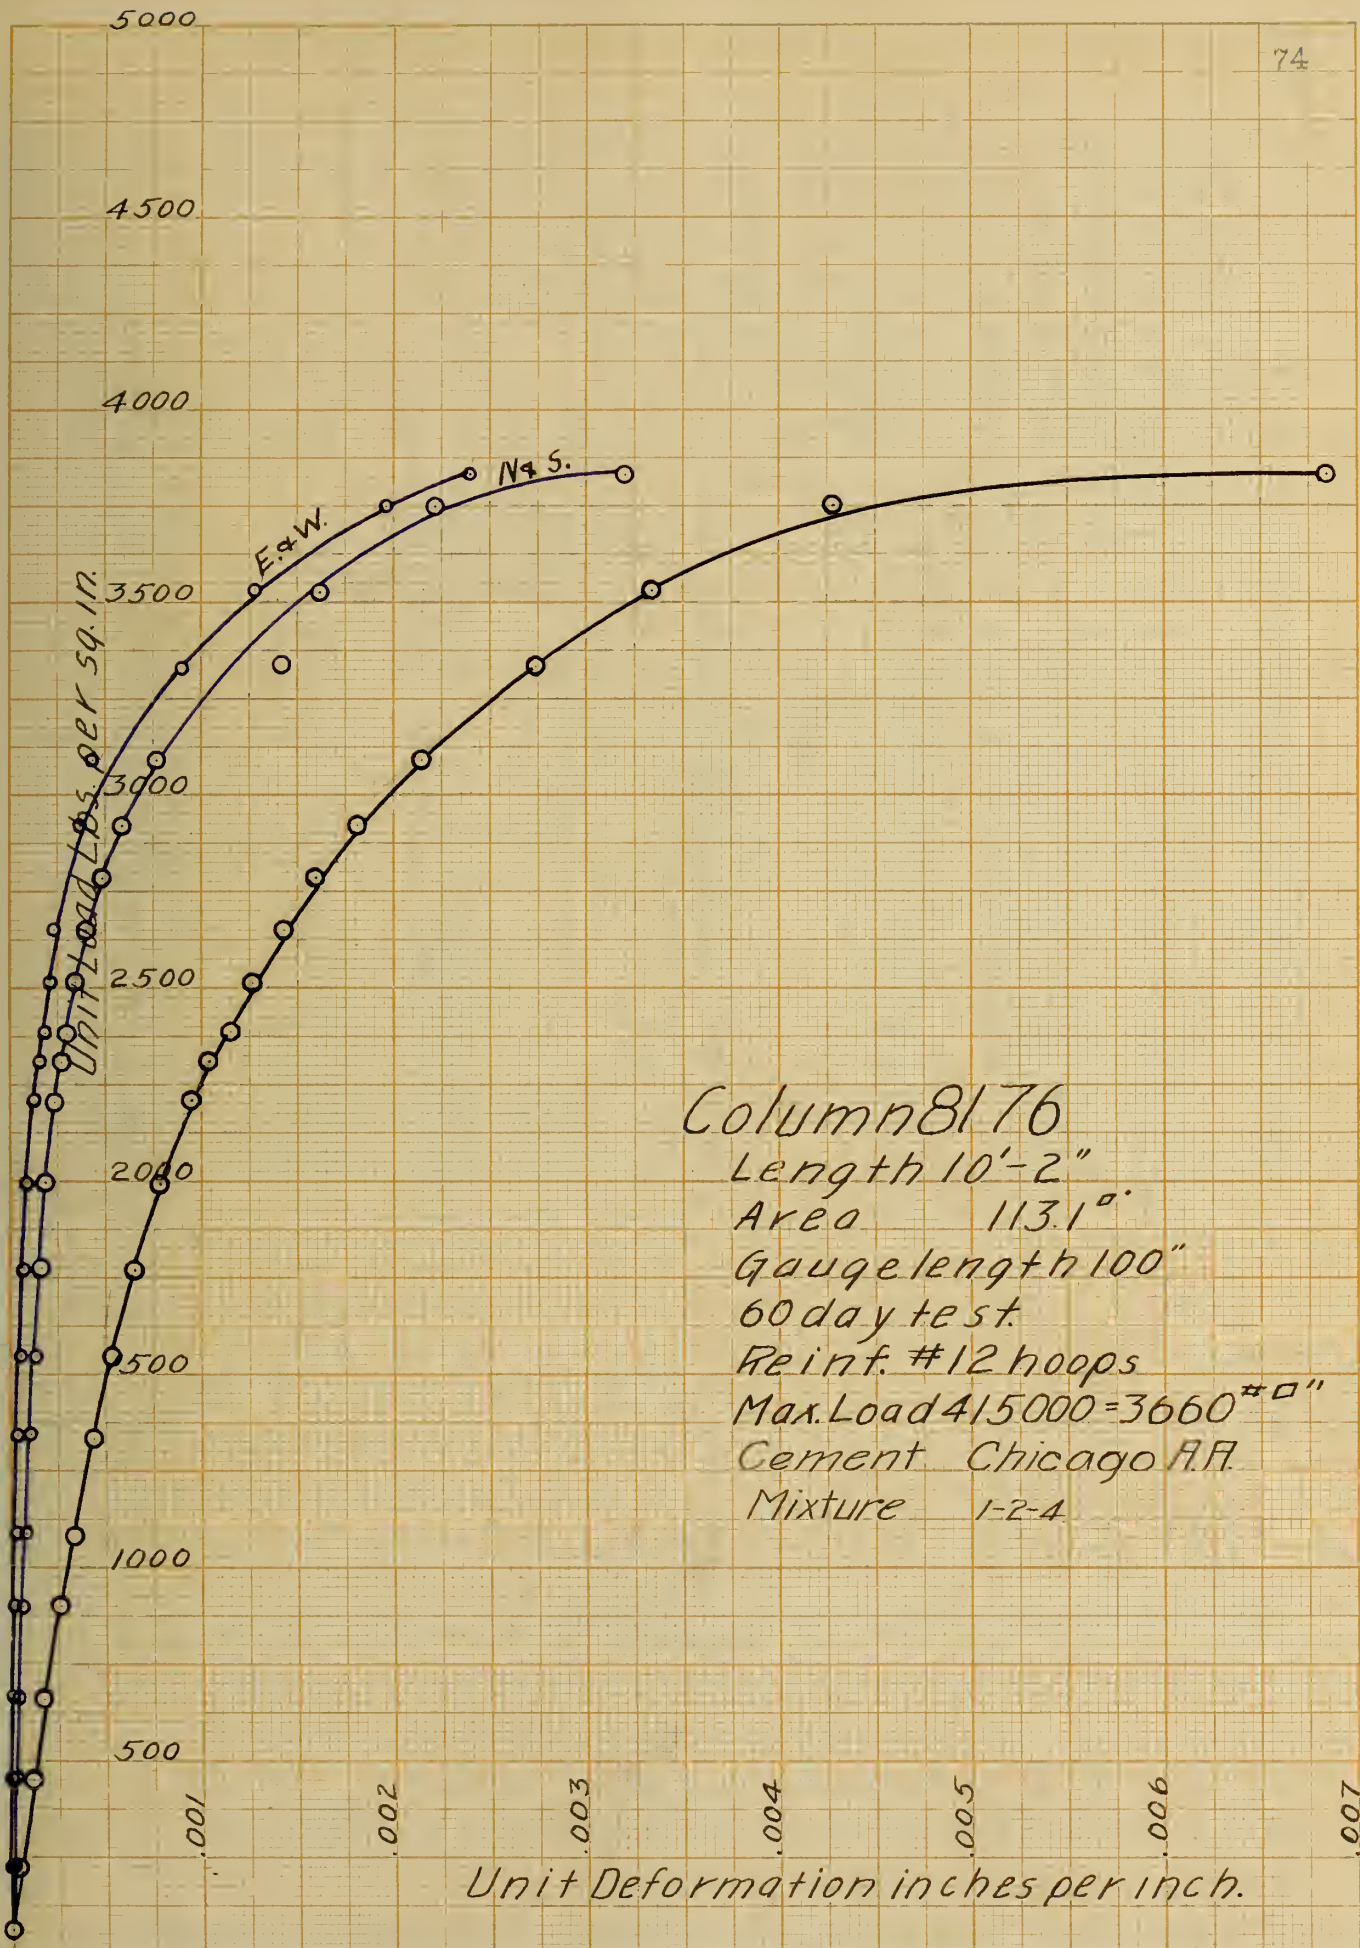 74
5000
4500
4000
3500
3000
2500
2000
1500
1000
500
Unit Load Lbs. per sq. in.
E. & W.
N & S.
Column 8176
Length 10'-2"
Area 113.1 □"
Gauge length 100"
60 day test.
Reinf. #12 hoops
Max. Load 415000 = 3660 # □"
Cement Chicago A.A.
Mixture 1-2-4
.001 .002 .003 .004 .005 .006 .007
Unit Deformation inches per inch.